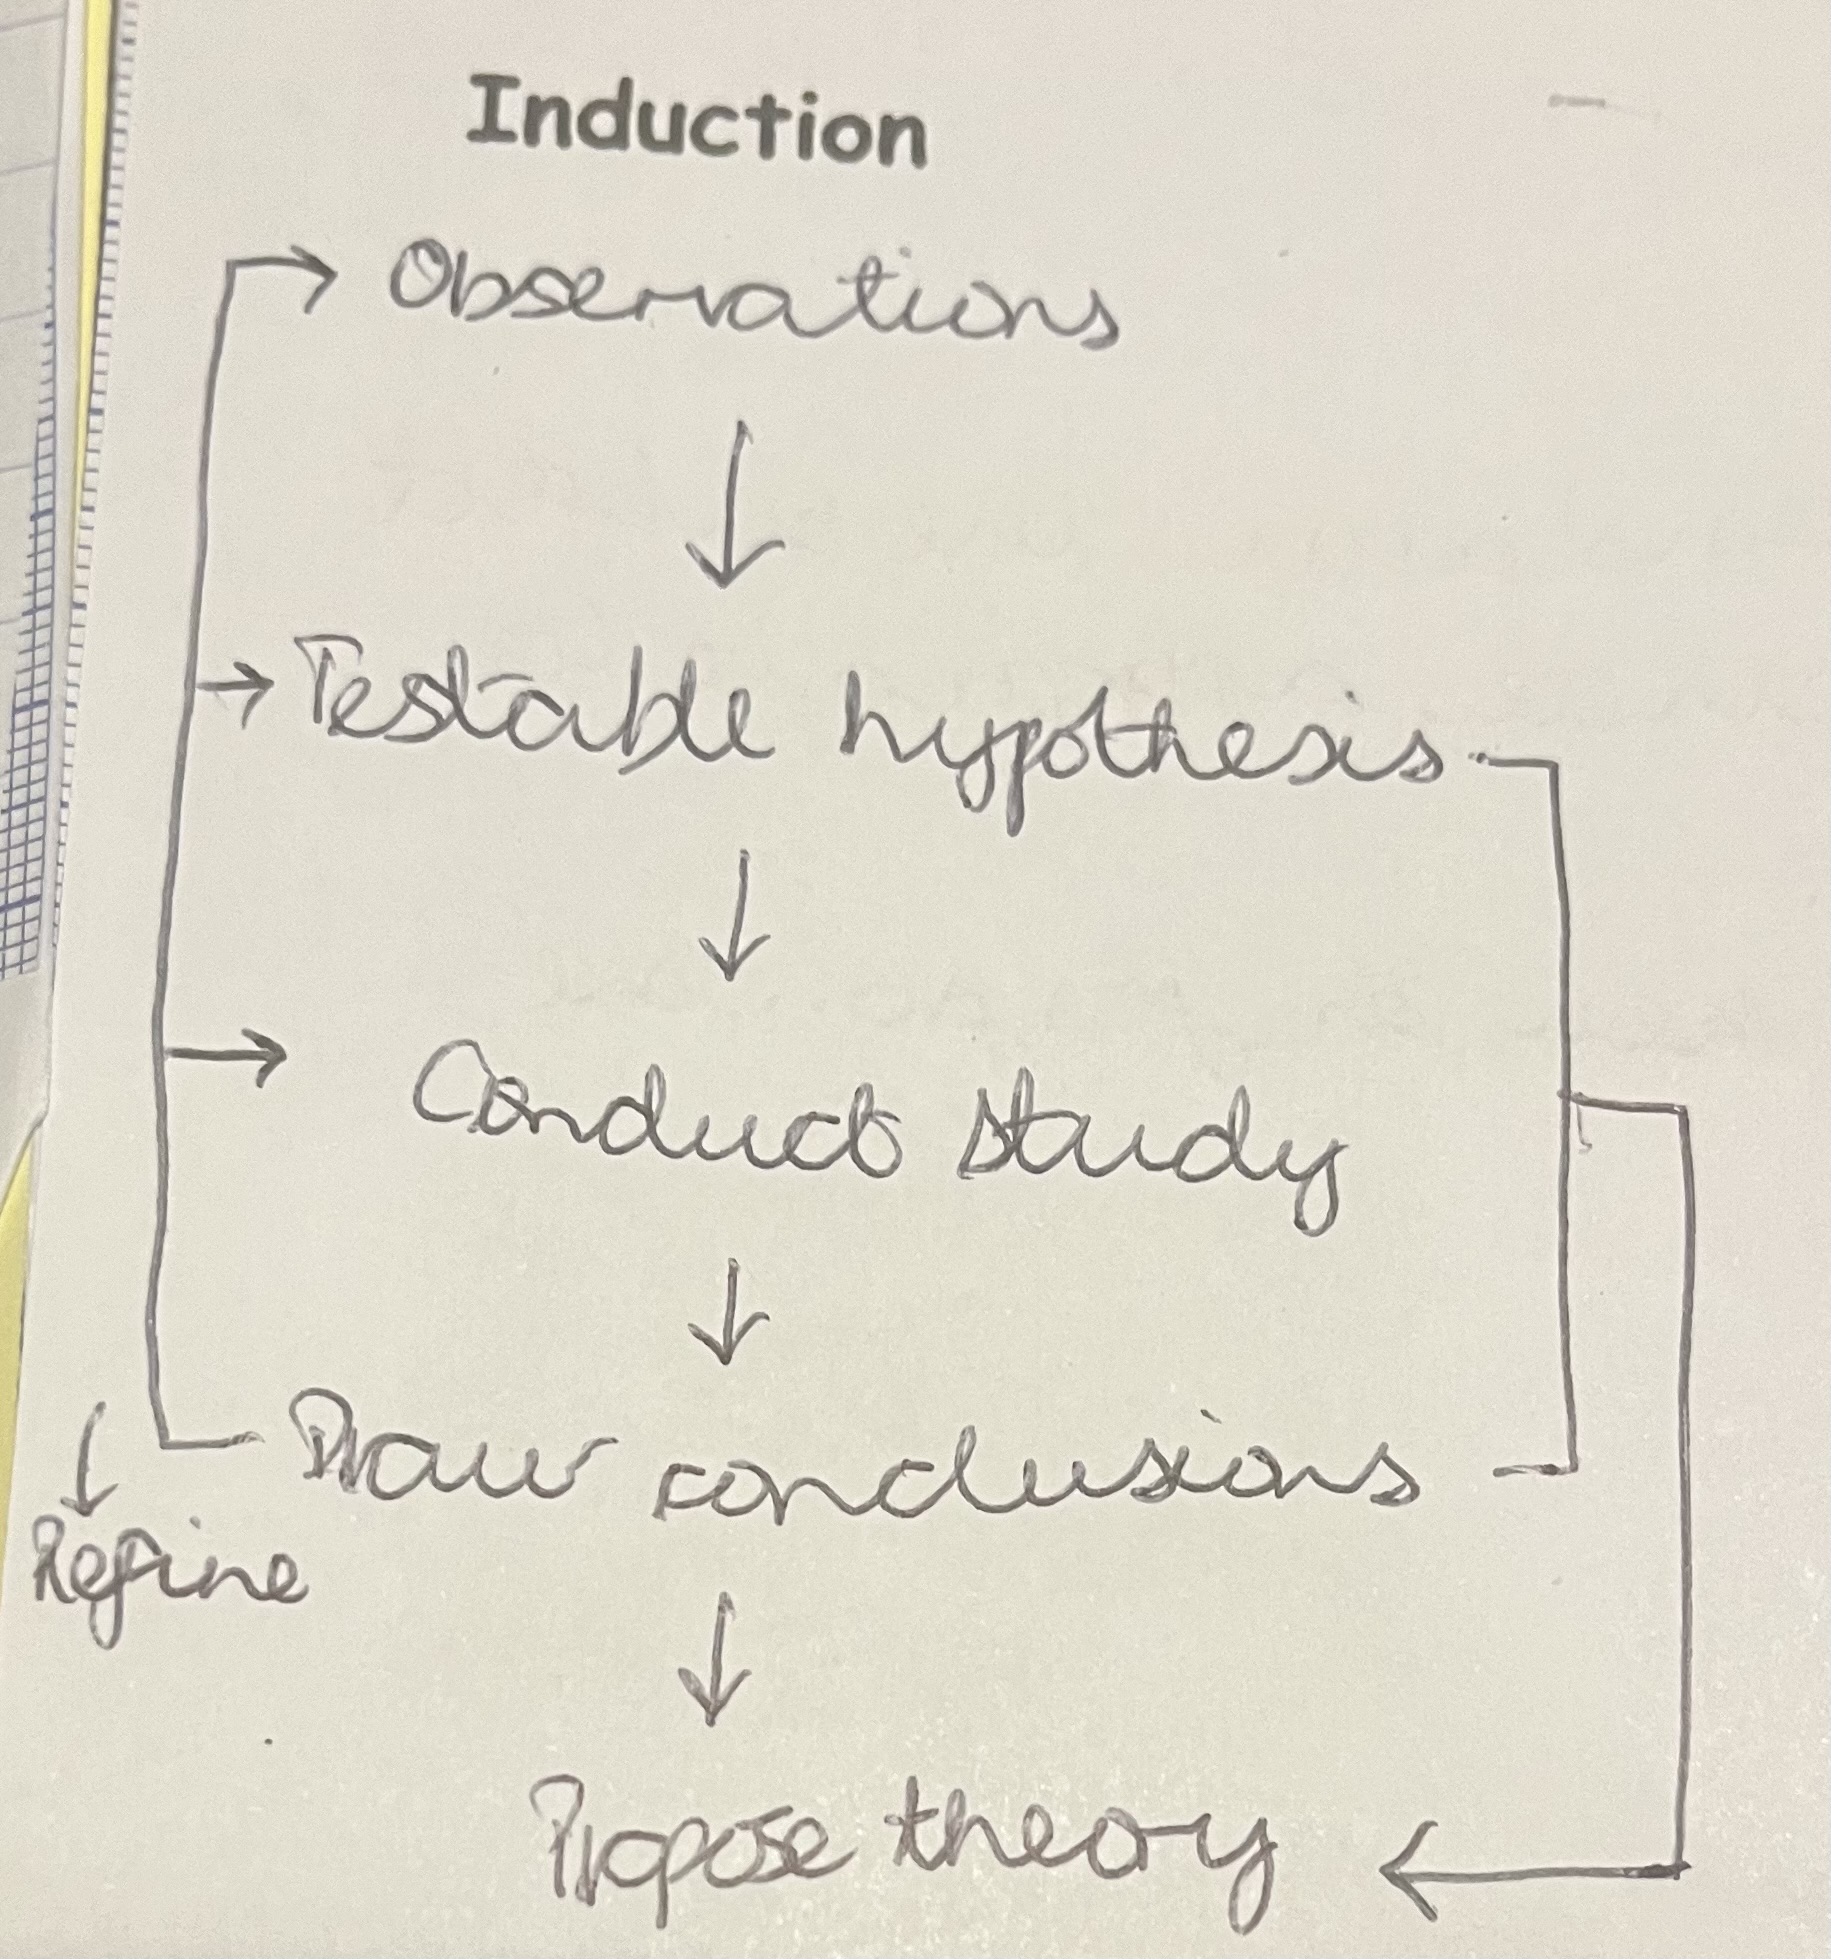 Induction
Observations
Testable hypothesis
Conduct study
Draw conclusions
Refine
Propose theory